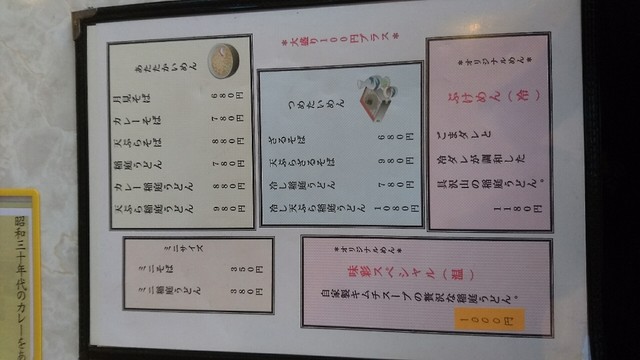 *大盛り100円プラス*
*オリジナルめん*
ぶけめん(冷)
ごまダレと
冷ダレが調和した
具沢山の稲庭うどん。
1180円
つめたいめん
ざるそば 680円
天ぷらざるそば 980円
冷し稲庭うどん 780円
冷し天ぷら稲庭うどん 1080円
あたたかいめん
月見そば 680円
カレーそば 780円
天ぷらそば 880円
稲庭うどん 780円
カレー稲庭うどん 880円
天ぷら稲庭うどん 980円
*オリジナルめん*
味彩スペシャル(温)
自家製キムチスープの贅沢な稲庭うどん。
1000円
ミニサイズ
ミニそば 350円
ミニ稲庭うどん 380円
昭和三十年代のカレーをあ